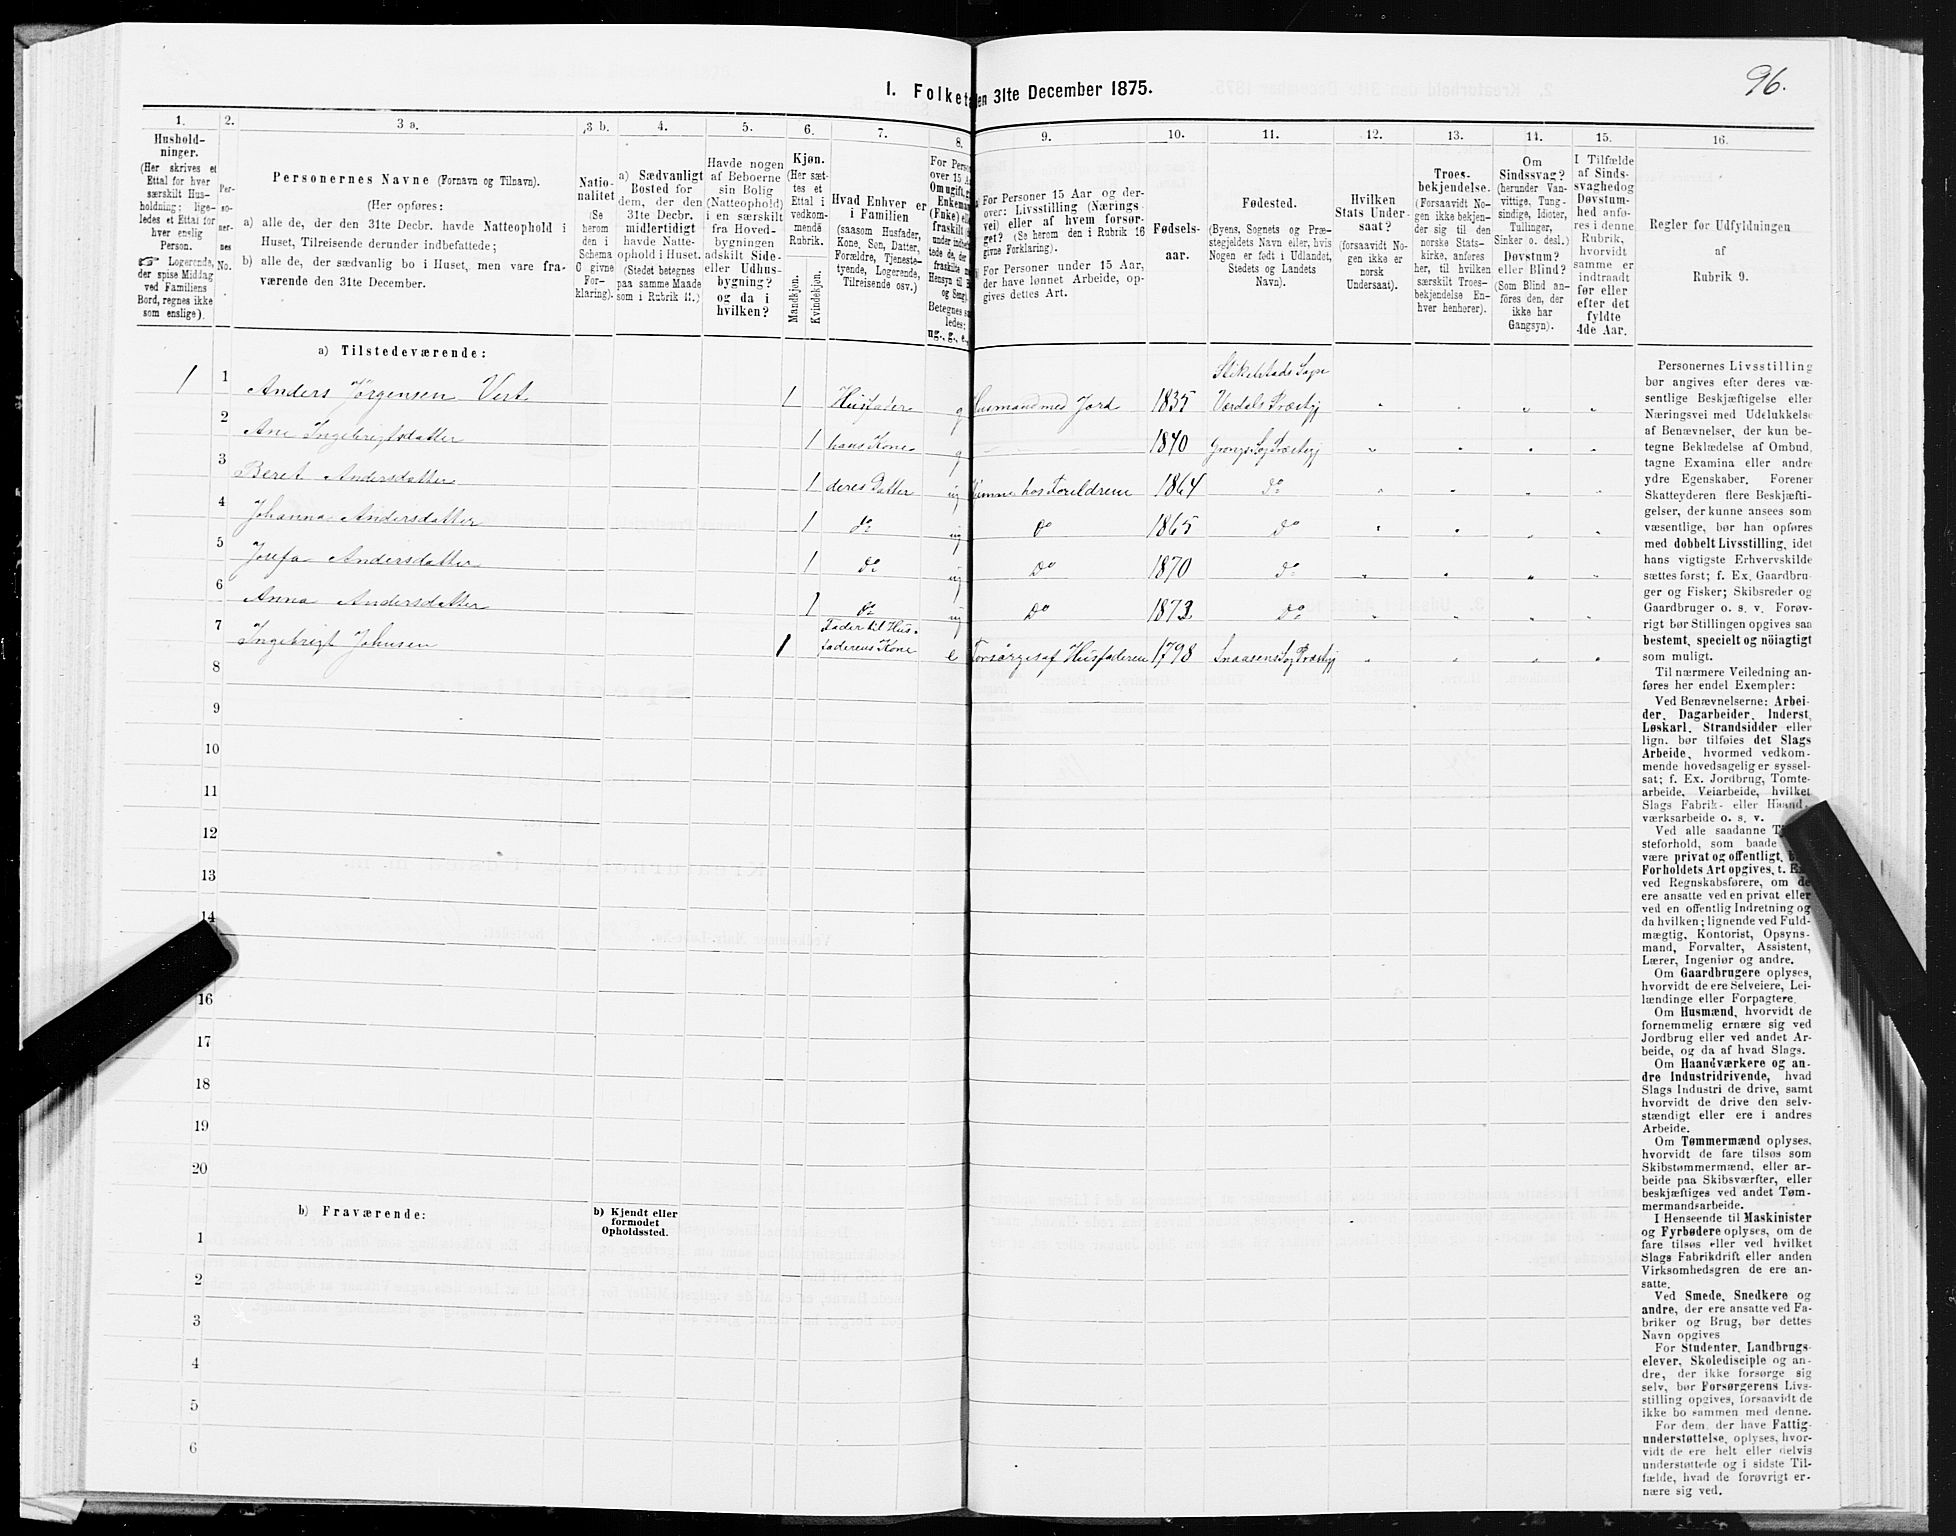 96.
I. Folketa en 31te December 1875.
1. 2. 3 a. 3 b. 4. 5. 6. 7. 8. 9. 10. 11. 12. 13. 14. 15. 16.
Hushold-
ninger.
(Her skrives et
Ettal for hver
særskilt Hus-
holdning; lige-
ledes et Ettal for
hver enslig
Person.
☞ Logerende,
der spise Middag
ved Familiens
Bord, regnes ikke
som enslige).
Per-
so-
ner-
nes
No.
Personernes Navne (Fornavn og Tilnavn).
(Her opføres:
a) alle de, der den 31te Decbr. havde Natteophold i
Huset, Tilreisende derunder indbefattede;
b) alle de, der sædvanlig bo i Huset, men vare fra-
værende den 31te December.
Natio-
nalitet
(Se
herom
den i
Schema
C givne
For-
klaring).
a) Sædvanligt
Bosted for
dem, der den
31te Decbr.
midlertidigt
havde Natte-
ophold i Huset.
(Stedet betegnes
paa samme Maade
som i Rubrik 11.)
Havde nogen
af Beboerne
sin Bolig
(Natteophold)
i en særskilt
fra Hoved-
bygningen
adskilt Side-
eller Udhus-
bygning?
og da i
hvilken?
Kjøn.
(Her sæt-
tes et
Ettal i
vedkom-
mende
Rubrik.
Mandkjøn.
Kvindekjøn.
Hvad Enhver er
i Familien
(saasom Husfader,
Kone, Søn, Datter,
Forældre, Tjeneste-
tyende, Logerende,
Tilreisende osv.)
For Pers
over 15 A
Om ugift, g
Enkema
(Enke) ell
fraskilt (
under indbe
tede de, der
fraskilte
Hensyn til B
og Seng).
Betegnes sa
ledes:
ug., g., e.,
For Personer 15 Aar og der-
over: Livsstilling (Nærings-
vei) eller af hvem forsør-
get? (Se herom den i Rubrik 16
givne Forklaring).
For Personer under 15 Aar,
der have lønnet Arbeide, op-
gives dettes Art.
Fødsels-
aar.
Fødested.
(Byens, Sognets og Præ-
stegjeldets Navn eller, hvis
Nogen er født i Udlandet,
Stedets og Landets
Navn).
Hvilken
Stats Under-
saat?
(forsaavidt No-
gen ikke er
norsk
Undersaat).
Troes-
bekjendelse.
(Forsaavidt No-
gen ikke bekjen-
der sig til den
norske Stats-
kirke, anføres
her, til hvilken
særskilt Troes-
bekjendelse En-
hver henhører).
Om
Sindssvag?
(herunder Van-
vittige, Tung-
sindige, Idioter,
Tullinger,
Sinker o. desl.)
Døvstum?
eller Blind?
(Som Blind an-
føres den, der
ikke har
Gangsyn).
I Tilfælde
af Sinds-
svaghedog
Døvstum-
hed anfø-
res i denne
Rubrik,
hvorvidt
samme er
indtraadt
før eller
efter det
fyldte
4de Aar.
Regler for Udfyldningen
af
Rubrik 9.
a) Tilstedeværende:
Stikelstads Sogn
1 1 Anders Jörgensen Vest. 1 Husfader g Husmand med Jord 1835 Værdals Præstgj
2 Ane Ingebrigtsdatter 1 hans Kone g 1840 Grongs Sog Præstgj
3 Beret Andersdatter 1 deres Datter ug hjemme hos Foreldrene 1864 do
4 Johanna Andersdatter 1 do ug Do 1865 do
5 Josefa Andersdatter 1 do ug Do 1870 do
6 Anna Andersdatter 1 do ug Do 1873 Do
7 Ingebrigt Johnsen 1 Fader til Hus-
faderens Kone e Forsörges af Husfaderen 1798 Snaasens Sog Præstgj
8
9
10
11
12
13
14
16
17
18
19
20
b) Fraværende:
b) Kjendt eller
formodet
Opholdssted.
1
2
3
4
5
6
Personernes Livsstilling
bør angives efter deres væ-
sentlige Beskjæftigelse eller
Næringsvei med Udelukkelse
af Benævnelser, der kun be-
tegne Beklædelse af Ombud,
tagne Examina eller andre
ydre Egenskaber. Forener
Skatteyderen flere Beskjæfti-
gelser, der kunne ansees som
væsentlige, bør han opføres
med dobbelt Livsstilling, idet
hans vigtigste Erhvervskilde
sættes først; f. Ex. Gaardbru-
ger og Fisker; Skibsreder og
Gaardbruger o. s. v. Forøv-
rigt bør Stillingen opgives saa
bestemt, specielt og nöiagtigt
som muligt.
Til nærmere Veiledning an-
føres her endel Exempler:
Ved Benævnelserne: Arbei-
der, Dagarbeider, Inderst,
Løskarl, Strandsidder eller
lign. bør tilføies det Slags
Arbeide, hvormed vedkom-
mende hovedsagelig er syssel-
sat; f. Ex. Jordbrug, Tomte-
arbeide, Veiarbeide, hvilket
Slags Fabrik- eller Haand-
værksarbeide o. s. v.
Ved alle saadanne
steforhold, som baade
være privat og offentligt,
Forholdets Art opgives, t. Ex.
ved Regnskabsførere, om de
ere ansatte ved en privat eller
ved en offentlig Indretning og
da hvilken; lignende ved Fuld-
mægtig, Kontorist, Opsyns-
mand, Forvalter, Assistent,
Lærer, Ingeniør og andre.
Om Gaardbrugere oplyses,
hvorvidt de ere Selveiere, Lei-
lændinge eller Forpagtere.
Om Husmænd, hvorvidt de
fornemmelig ernære sig ved
Jordbrug eller ved andet Ar-
beide, og da af hvad Slags.
Om Haandværkere og an-
dre Industridrivende, hvad
Slags Industri de drive, samt
hvorvidt de drive den selv-
stændigt eller ere i andres
Arbeide.
Om Tømmermænd oplyses,
hvorvidt de fare tilsøs som
Skibstømmermænd, eller ar-
beide paa Skibsværfter, eller
beskjæftiges ved andet Tøm-
mermandsarbeide.
I Henseende til Maskinister
og Fyrbødere oplyses, om de
fare tilsøs eller ved hvilket
Slags Fabrikdrift eller anden
Virksomhedsgren de ere an-
satte.
Ved Smede, Snedkere og
andre, der ere ansatte ved Fa-
briker og Brug, bør dettes
Navn opgives
For Studenter, Landbrugs-
elever, Skoledisciple og an-
dre, der ikke forsørge sig
selv, bør Forsørgerens Livs-
stilling opgives, forsaavidt de
ikke bo sammen med denne.
For dem, der have Fattig-
understøttelse, oplyses, hvor-
vidt de ere helt eller delvis
understøttede og i sidste Til-
fælde, hvad de forøvrigt er-
nære sig ved.